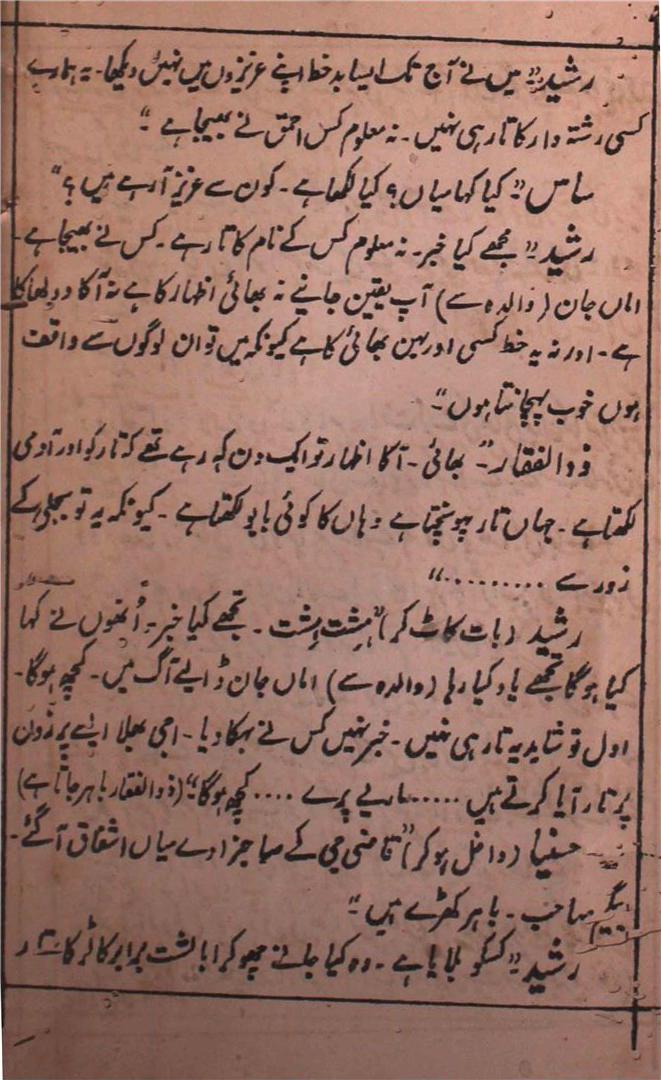 رشید "میں نے آج تک ایسا بدخط اپنے عزیزوں میں نہیں دیکھا۔ یہ ہمارے
کسی رشتہ دار کا تار ہی نہیں۔ نہ معلوم کس احمق نے بھیجا ہے"
ساس "کیا کہا میاں؟ کیا لکھا ہے۔ کون سے عزیز آ رہے ہیں؟"
رشید "مجھے کیا خبر۔ نہ معلوم کس کے نام کا تار ہے۔ کس نے بھیجا ہے۔
اماں جان (والدہ سے) آپ یقین جانیے نہ بھائی اظہار کا ہے نہ آکا دولھا کا
ہے۔ اور نہ یہ خط کسی اور بہن بھائی کا ہے کیونکہ میں تو ان لوگوں سے واقف
ہوں خوب پہچانتا ہوں"
ذوالفقار "بھائی۔ آکا اظہار تو ایک دن کہہ رہے تھے کہ تار کو اور آدمی
لکھتا ہے۔ جہاں تار پہونچتا ہے وہاں کا کوئی بابو لکھتا ہے۔ کیونکہ یہ تو بجلی کے
زور سے ........."
رشید (بات کاٹ کر) "ہِشت ہِشت۔ تجھے کیا خبر۔ اُنھوں نے کہا
کیا ہوگا تجھے یاد کیا رہا (والدہ سے) اماں جان ڈالیے آگ میں۔ کچھ ہوگا۔
اول تو شاید یہ تار ہی نہیں۔ خبر نہیں کس نے بہکا دیا۔ اجی بھلا ایسے پرزوں
پر تار آیا کرتے ہیں ..... ماریے پرے .... کچھ ہوگا" (ذوالفقار باہر جاتا ہے)
(داخل ہو کر) "قاضی جی کے صاحبزادے میاں اشفاق آگئے۔
بیگم صاحب۔ باہر کھڑے ہیں"
رشید "کسکو بلایا ہے۔ وہ کیا جانے چھوکرا بالشت برابر کا